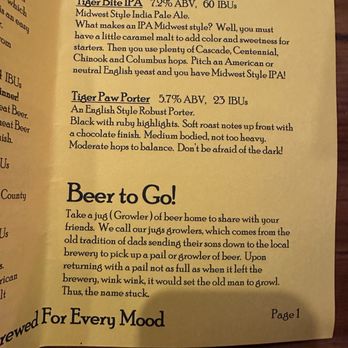 which
an easy
from
Tiger Bite IPA 7.2% ABV, 60 IBUs
Midwest Style India Pale Ale.
What makes an IPA Midwest style? Well, you must
have a little caramel malt to add color and sweetness for
starters. Then you use plenty of Cascade, Centennial,
Chinook and Columbus hops. Pitch an American or
neutral English yeast and you have Midwest Style IPA!
4 IBUs
inner!
eat Beer
eat Beer
finish.
Us
Tiger Paw Porter 5.7% ABV, 23 IBUs
An English Style Robust Porter.
Black with ruby highlights. Soft roast notes up front with
a chocolate finish. Medium bodied, not too heavy.
Moderate hops to balance. Don't be afraid of the dark!
County
IBUs
Us
s.
merican
lt
Beer to Go!
Take a jug (Growler) of beer home to share with your
friends. We call our jugs growlers, which comes from the
old tradition of dads sending their sons down to the local
brewery to pick up a pail or growler of beer. Upon
returning with a pail not as full as when it left the
brewery, wink wink, it would set the old man to growl.
Thus, the name stuck.
rewed For Every Mood
Page 1